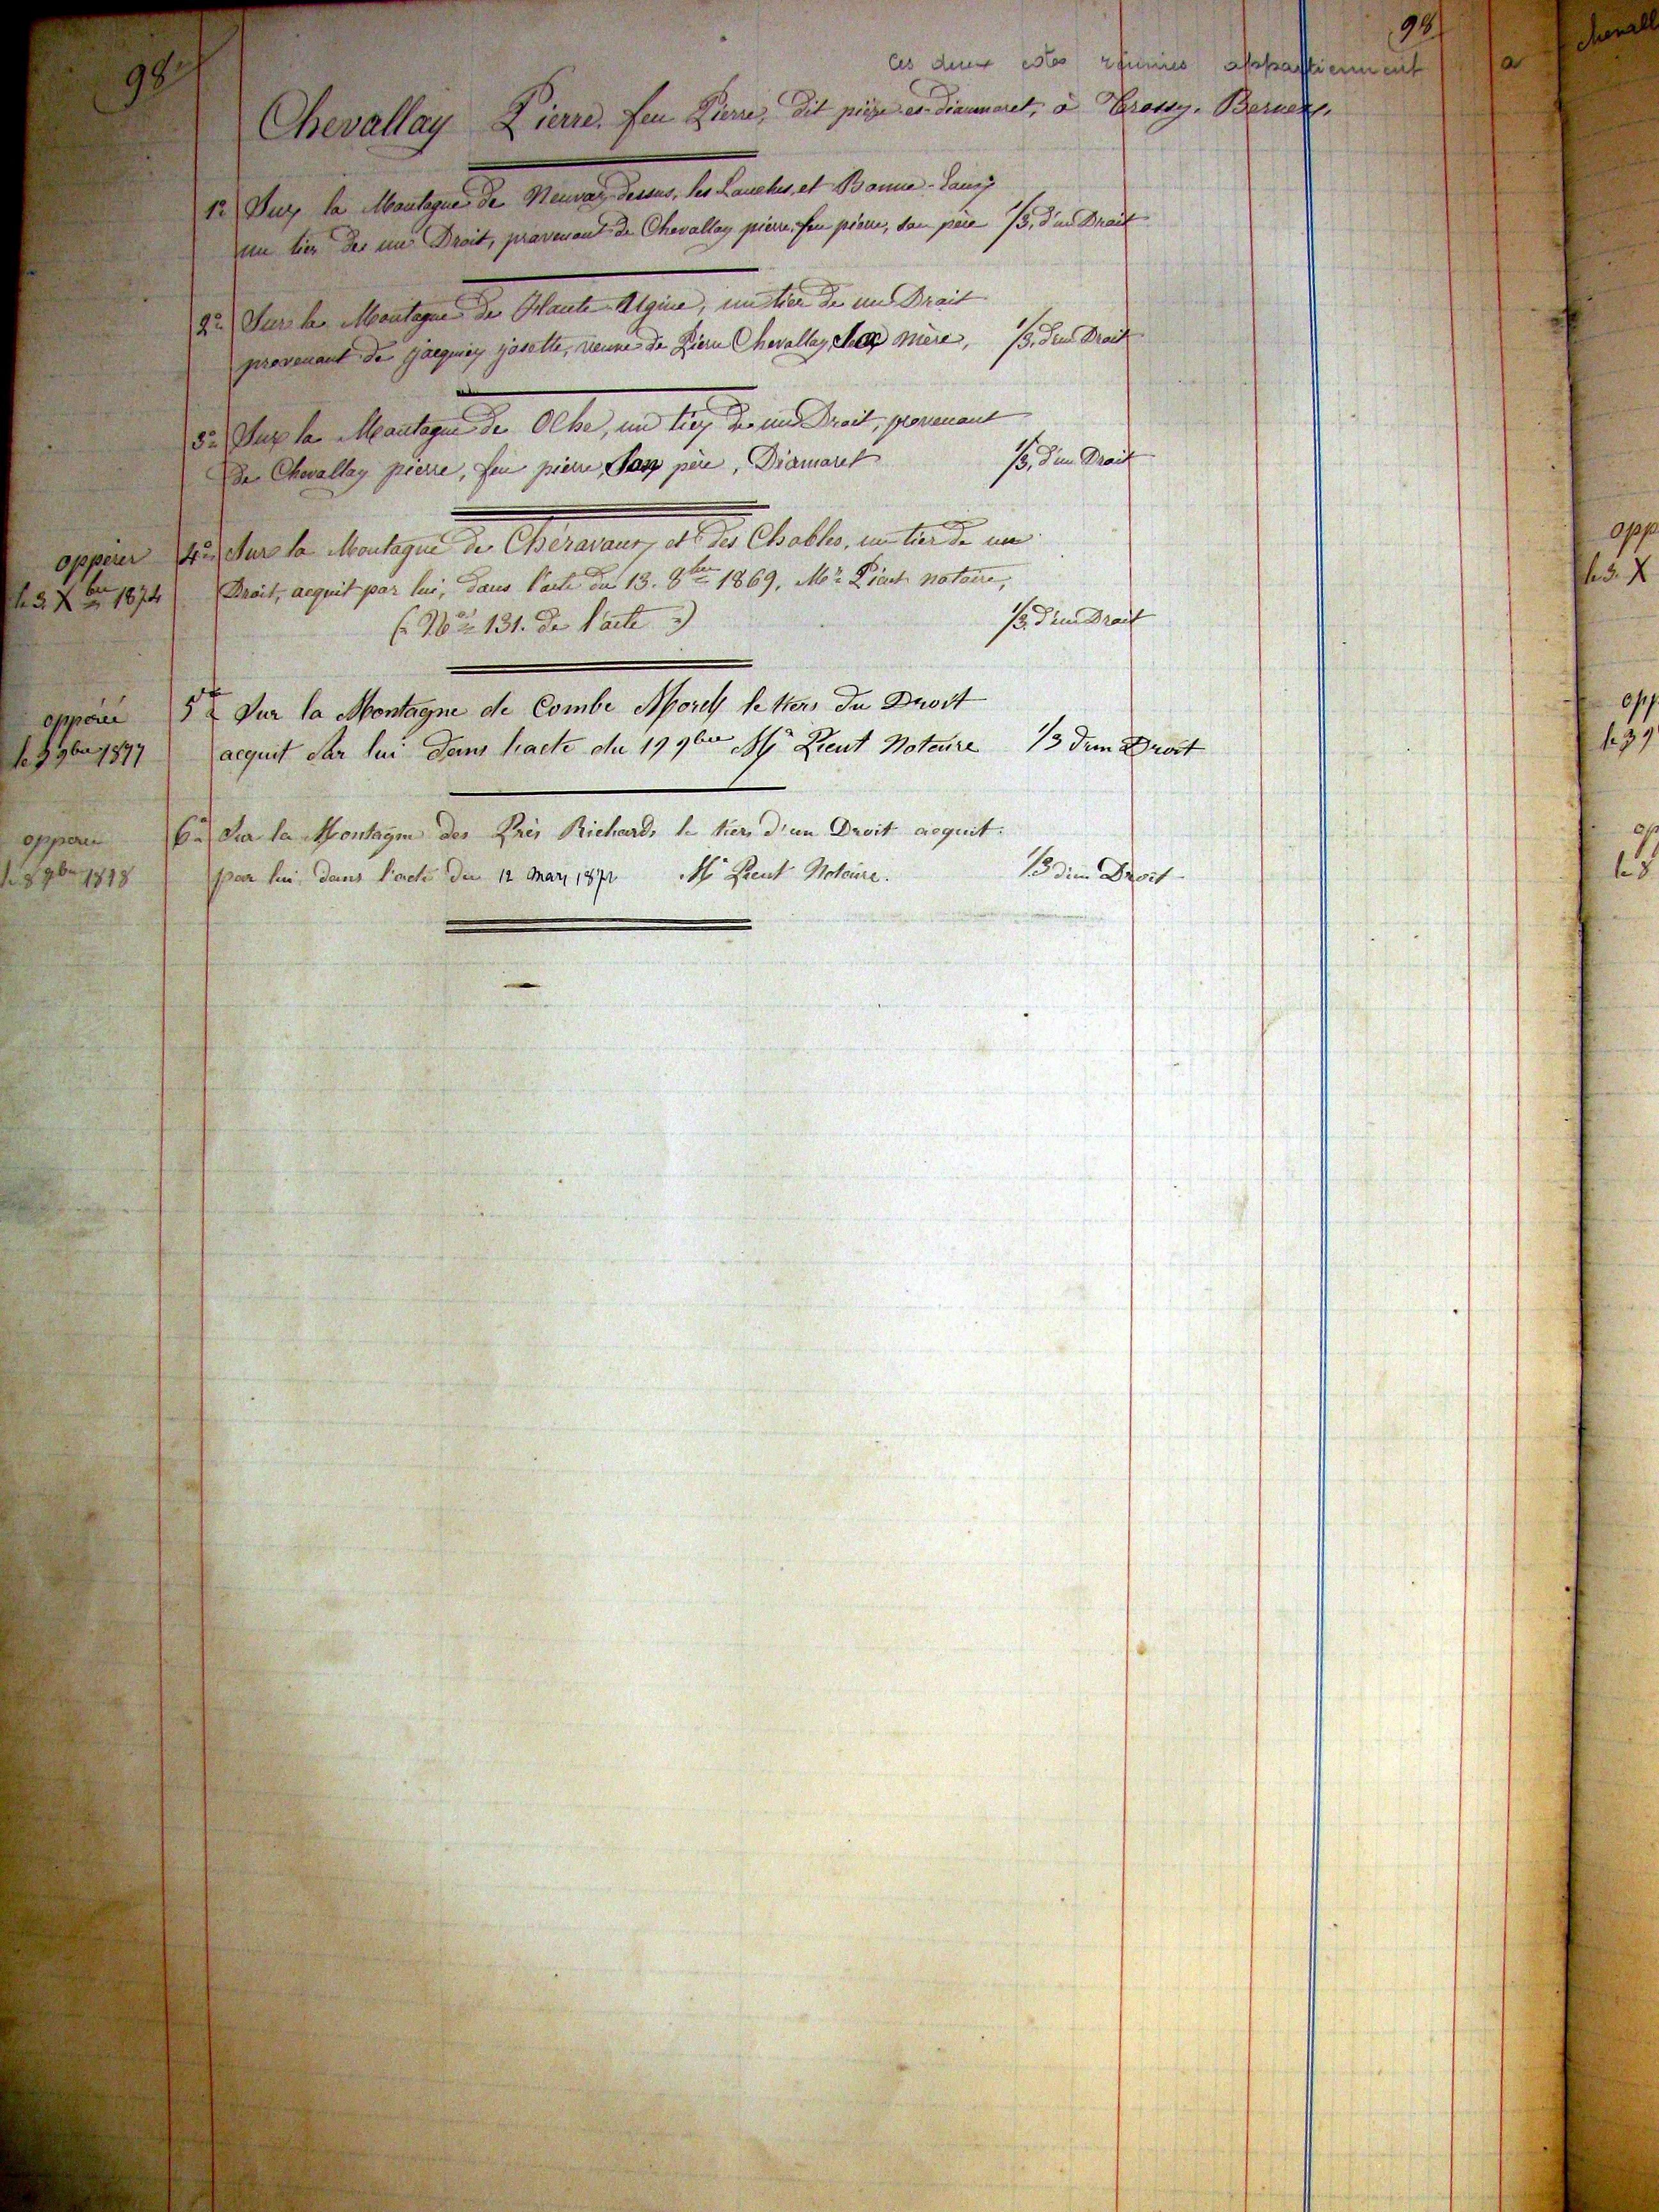 98
98
ces deux cotes réunies appartiennent a
Chevallay Pierre, feu Pierre, dit pierre es-diamaret, à Trossy. Bernex.
1º Sur la Montagne de Neuvaz-dessus, les Lanches, et Bonne-Eaux
un tier de un Droit, provenant de Chevallay pierre, feu pierre, son père 1/3, d'un Droit
2º Sur la Montagne de Haute Ugine, un tier de un Droit
provenant de Jacquier josette, veuve de Pierre Chevallay, sa mère, 1/3, d'un Droit
3º Sur la Montagne de Oche, un tier de un Droit, provenant
de Chevallay pierre, feu pierre, son père, Diamaret 1/3, d'un Droit
oppérer 4º Sur la Montagne de Chéravaux, et des Chables, un tier de un
le 3 Xbre 1874 Droit, acquit par lui, dans l'acte du 13. 8bre 1869, Mre Pient notaire,
(= No 131. de l'acte =) 1/3, d'un Droit
oppérée 5º Sur la Montagne de Combe Morels le tiers du Droit
le 3 9bre 1877 acquit par lui dans l'acte du 19 9bre Me Pient Notaire 1/3 d'un Droit
6º Sur la Montagne des Près Richards le tiers d'un Droit acquit
le 8 9bre 1878 par lui dans l'acte du 12 mars 1872 Me Pient Notaire. 1/3 d'un Droit
opp
le 3 X
opp
le 3 9
le 8